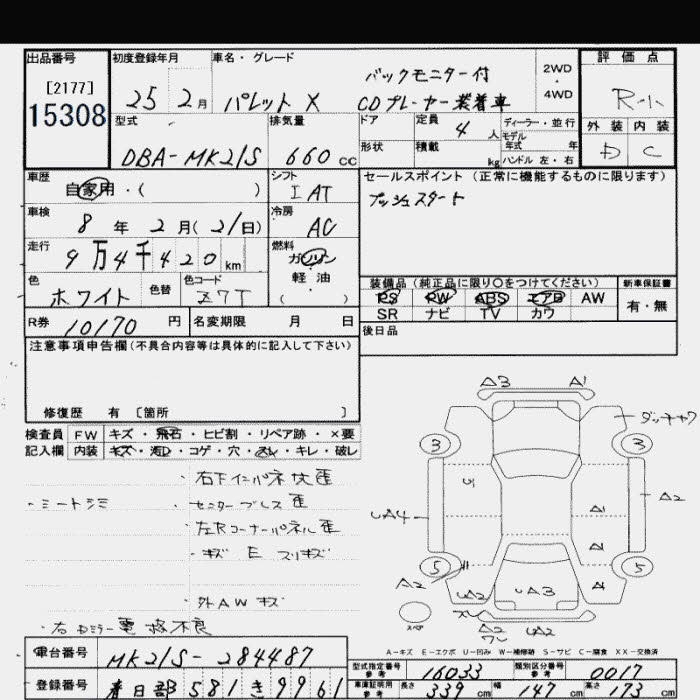 出品番号 初度登録年月 車名・グレード 評価点
[2177]
15308
25 2月 パレット X バックモニター付
CDプレーヤー装着車
2WD・4WD
R-小
型式 排気量 ドア 定員 4人 ディーラー・並行 外装 内装
モデル年式 年
DBA-MK21S 660cc 形状 積載 kg ハンドル 左・右 D C
車歴 シフト セールスポイント(正常に機能するものに限ります)
自家用・( ) IAT プッシュスタート
車検 冷房
8年 2月(21日) AC
走行 燃料
9万4千420km ガソリン
軽油
( )
色 色替 色コード 装備品(純正品に限り〇をつけてください) 新車保証書
ホワイト Z7T PS PW ABS エアB AW 有・無
SR ナビ TV カワ
R券 10170円 名変期限 月 日 後日品
注意事項申告欄(不具合内容等は具体的に記入して下さい)
修復歴 有 〔箇所 〕
検査員 FW キズ・飛石・ヒビ割・リペア跡・×要
記入欄 内装 キズ・凹・コゲ・穴・汚れ・キレ・破レ
・右下インパネ
・シートシミ ・センター 歪
・左Rコーナーパネル歪
・キズ E スリキズ
・外AWキズ
・右ドアミラー電格不良
A3 A1
ダッチャク
3 3
A2
UA4
A1
A1
A1
5 5
A2 UA2 UA3
スペア A2 UA2
A-キズ E-エクボ U-凹み W-補修跡 S-サビ C-腐食 XX-交換済
車台番号 MK21S-284487 型式指定番号 参考 16033 類別区分番号 参考 0017
登録番号 春日部 581 き 9961 車庫証明用 参考 長さ 339cm 幅 147cm 高さ 173cm